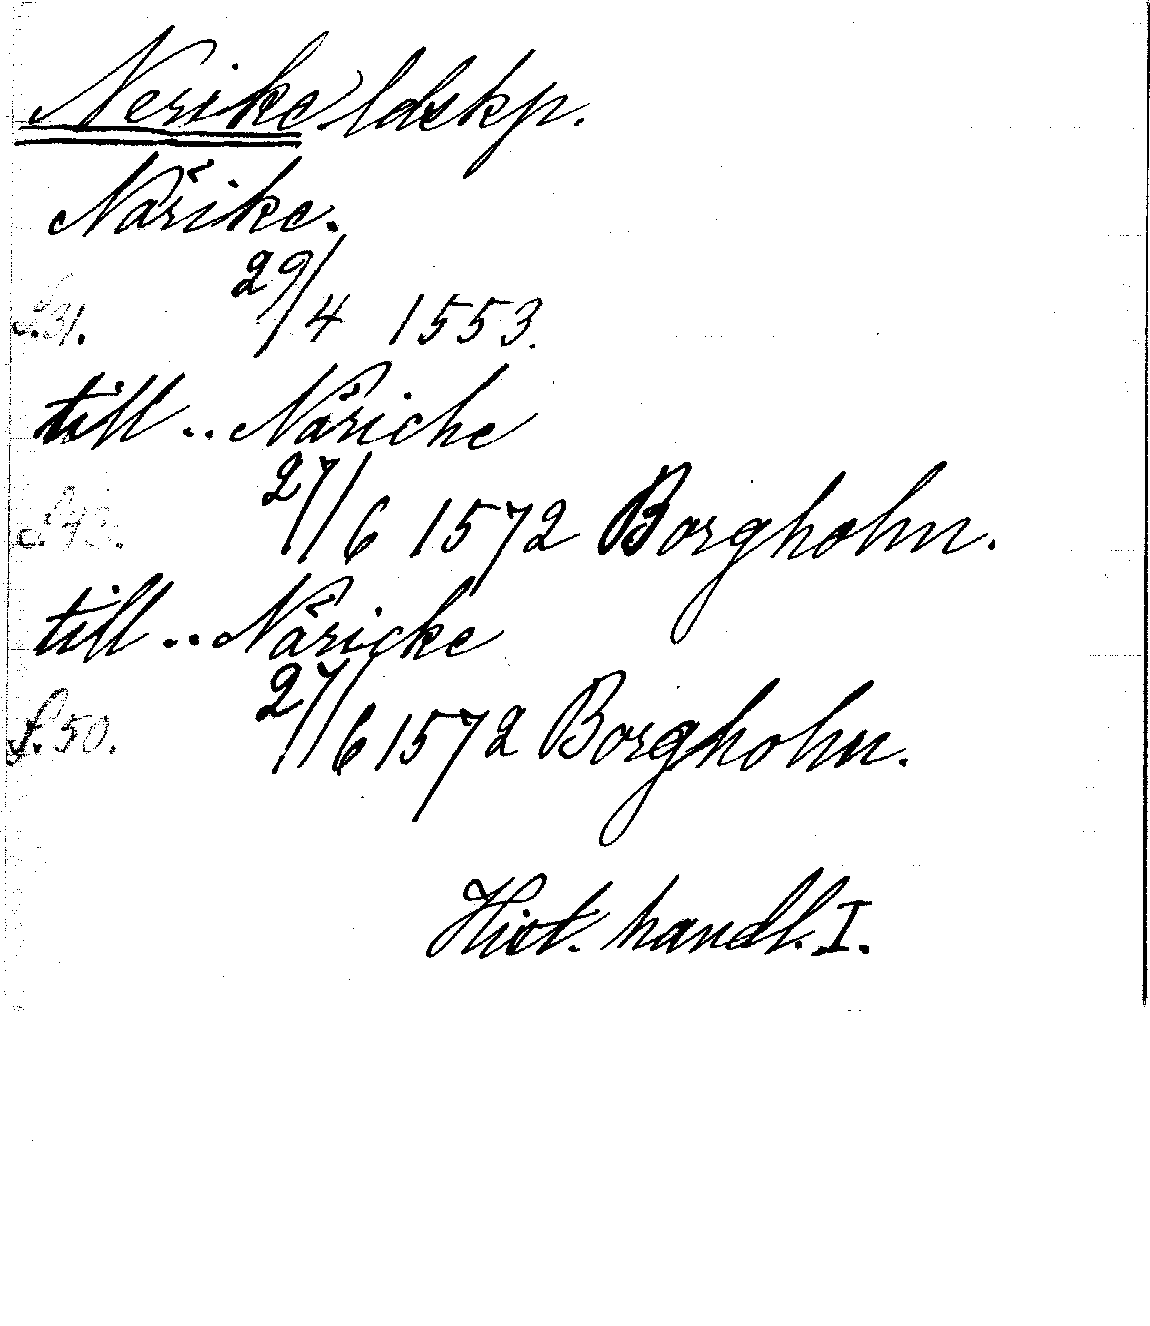 Nerike ldskp.
Närike.
s. 31. 29/4 1553.
till .. Näriche
27/6 1572 Borgholm.
till .. Näricke
s. 50. 27/6 1572 Borgholm.
Hist. handl. I.